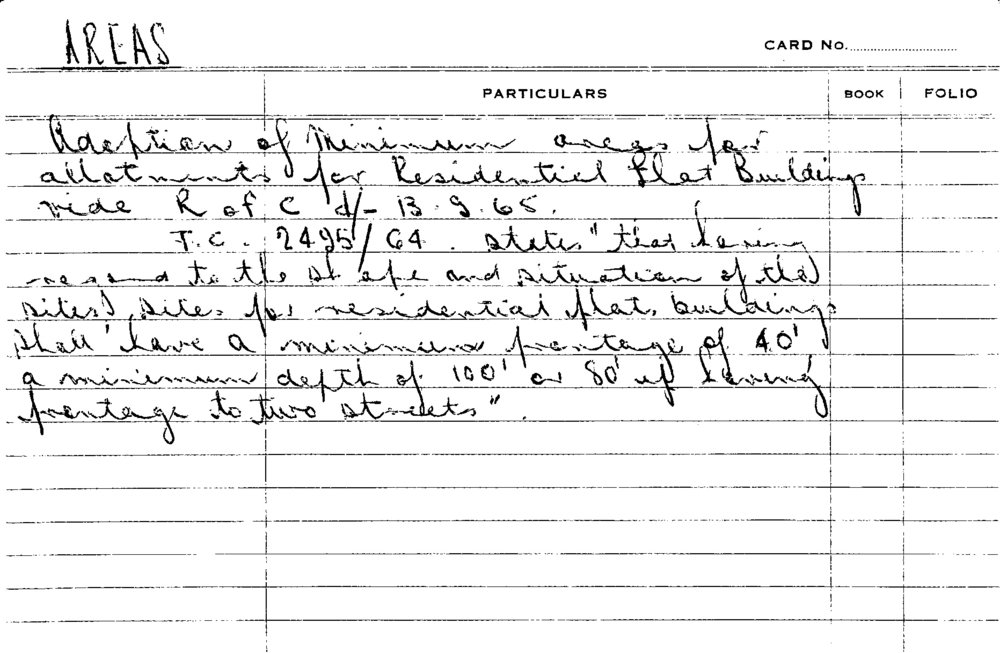 AREAS
CARD No.
PARTICULARS BOOK FOLIO
Adoption of Minimum areas for
allotments for Residential Flat Buildings
vide R of C d/- 13.9.65.
T.C. 2495/64. states "that having
regard to the shape and situation of the
sites, sites for residential flat buildings
shall have a minimum frontage of 40'
a minimum depth of 100' or 80' if having
frontage to two streets".